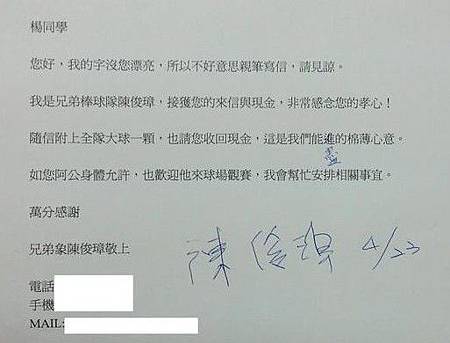 楊同學
您好，我的字沒您漂亮，所以不好意思親筆寫信，請見諒。
我是兄弟棒球隊陳俊璋，接獲您的來信與現金，非常感念您的孝心！
隨信附上全隊大球一顆，也請您收回現金，這是我們能進的棉薄心意。
盡
如您阿公身體允許，也歡迎他來球場觀賽，我會幫忙安排相關事宜。
萬分感謝
兄弟象陳俊璋敬上
陳俊璋 4/23
電話
手機
MAIL: